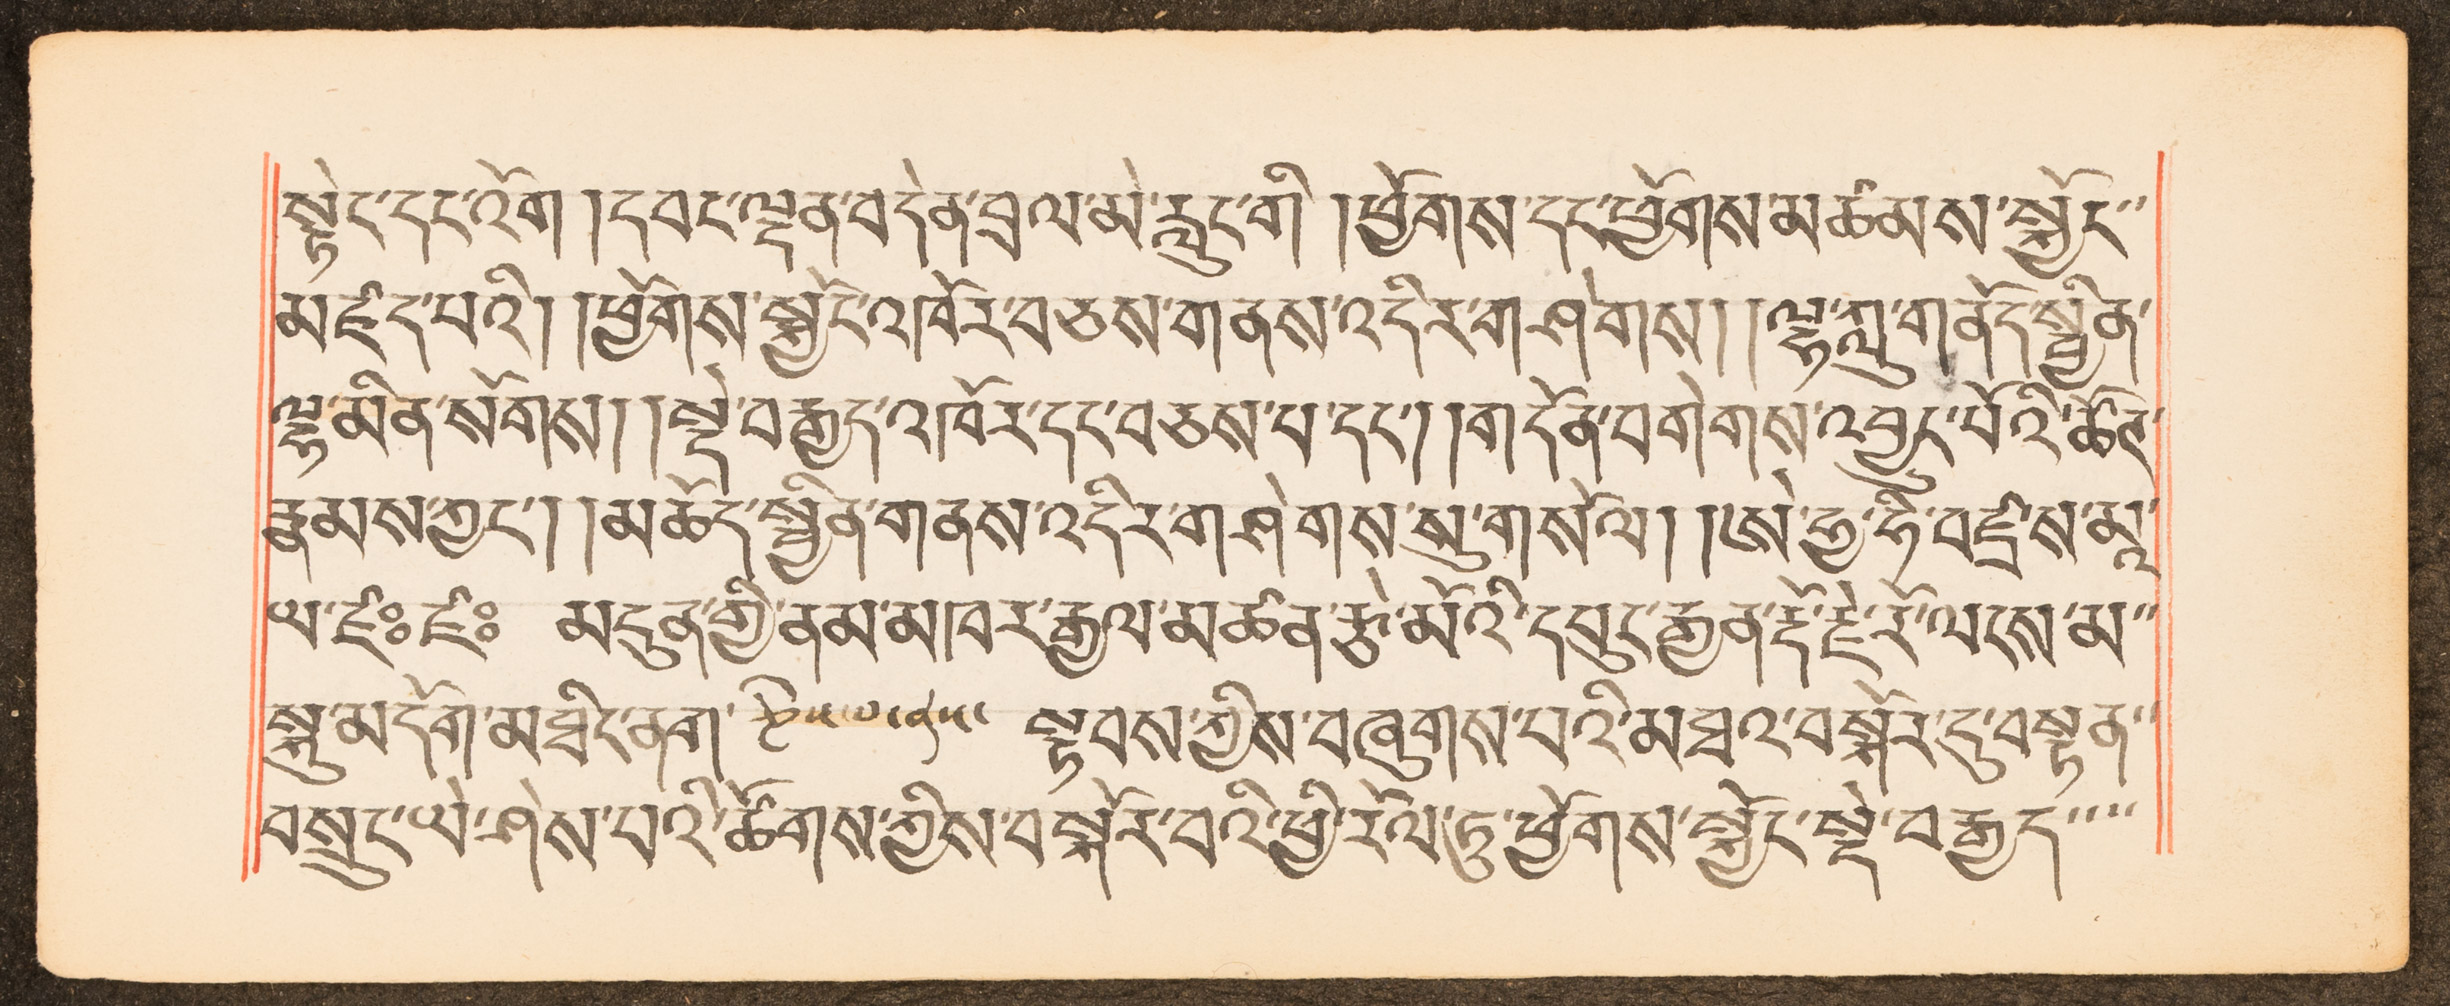 སྟེང་དང་འོག །དབང་ལྡན་བདེན་བྲལ་མེ་རླུང་གི །ཕྱོགས་དང་ཕྱོགས་མཚམས་སྐྱོང་
མཛད་པའི། །ཕྱོགས་སྐྱོང་འཁོར་བཅས་གནས་འདིར་གཤེགས། །ལྷ་ཀླུ་གནོད་སྦྱིན་
ལྷ་མིན་སོགས། །སྡེ་བརྒྱད་འཁོར་དང་བཅས་པ་དང་། །གདོན་བགེགས་འབྱུང་པོའི་ཚོར་
རྣམས་ཀྱང་། །མཆོད་སྦྱིན་གནས་འདིར་གཤེགས་སུ་གསོལ། །ཨེ་ཧྱ་ཧི་བཛྲ་ས་མཱ་
ཡ་ཛཿ ཛཿ མདུན་གྱི་ནམ་མཁར་རྒྱལ་མཚན་རྩེ་མོའི་དཔུང་རྒྱན་རྡོ་རྗེ་རོ་ལངས་མ་
སྐུ་མདོག་མཐིང་ནག་ སྟབས་ཀྱིས་བཞུགས་པའི་མཐར་བསྐོར་དུ་བསྟན་
བསྲུང་ཡེ་ཤེས་པའི་ཚོགས་ཀྱིས་བསྐོར་བའི་ཕྱི་རོལ་ཏུ་ཕྱོགས་སྐྱོང་སྡེ་བརྒྱད་